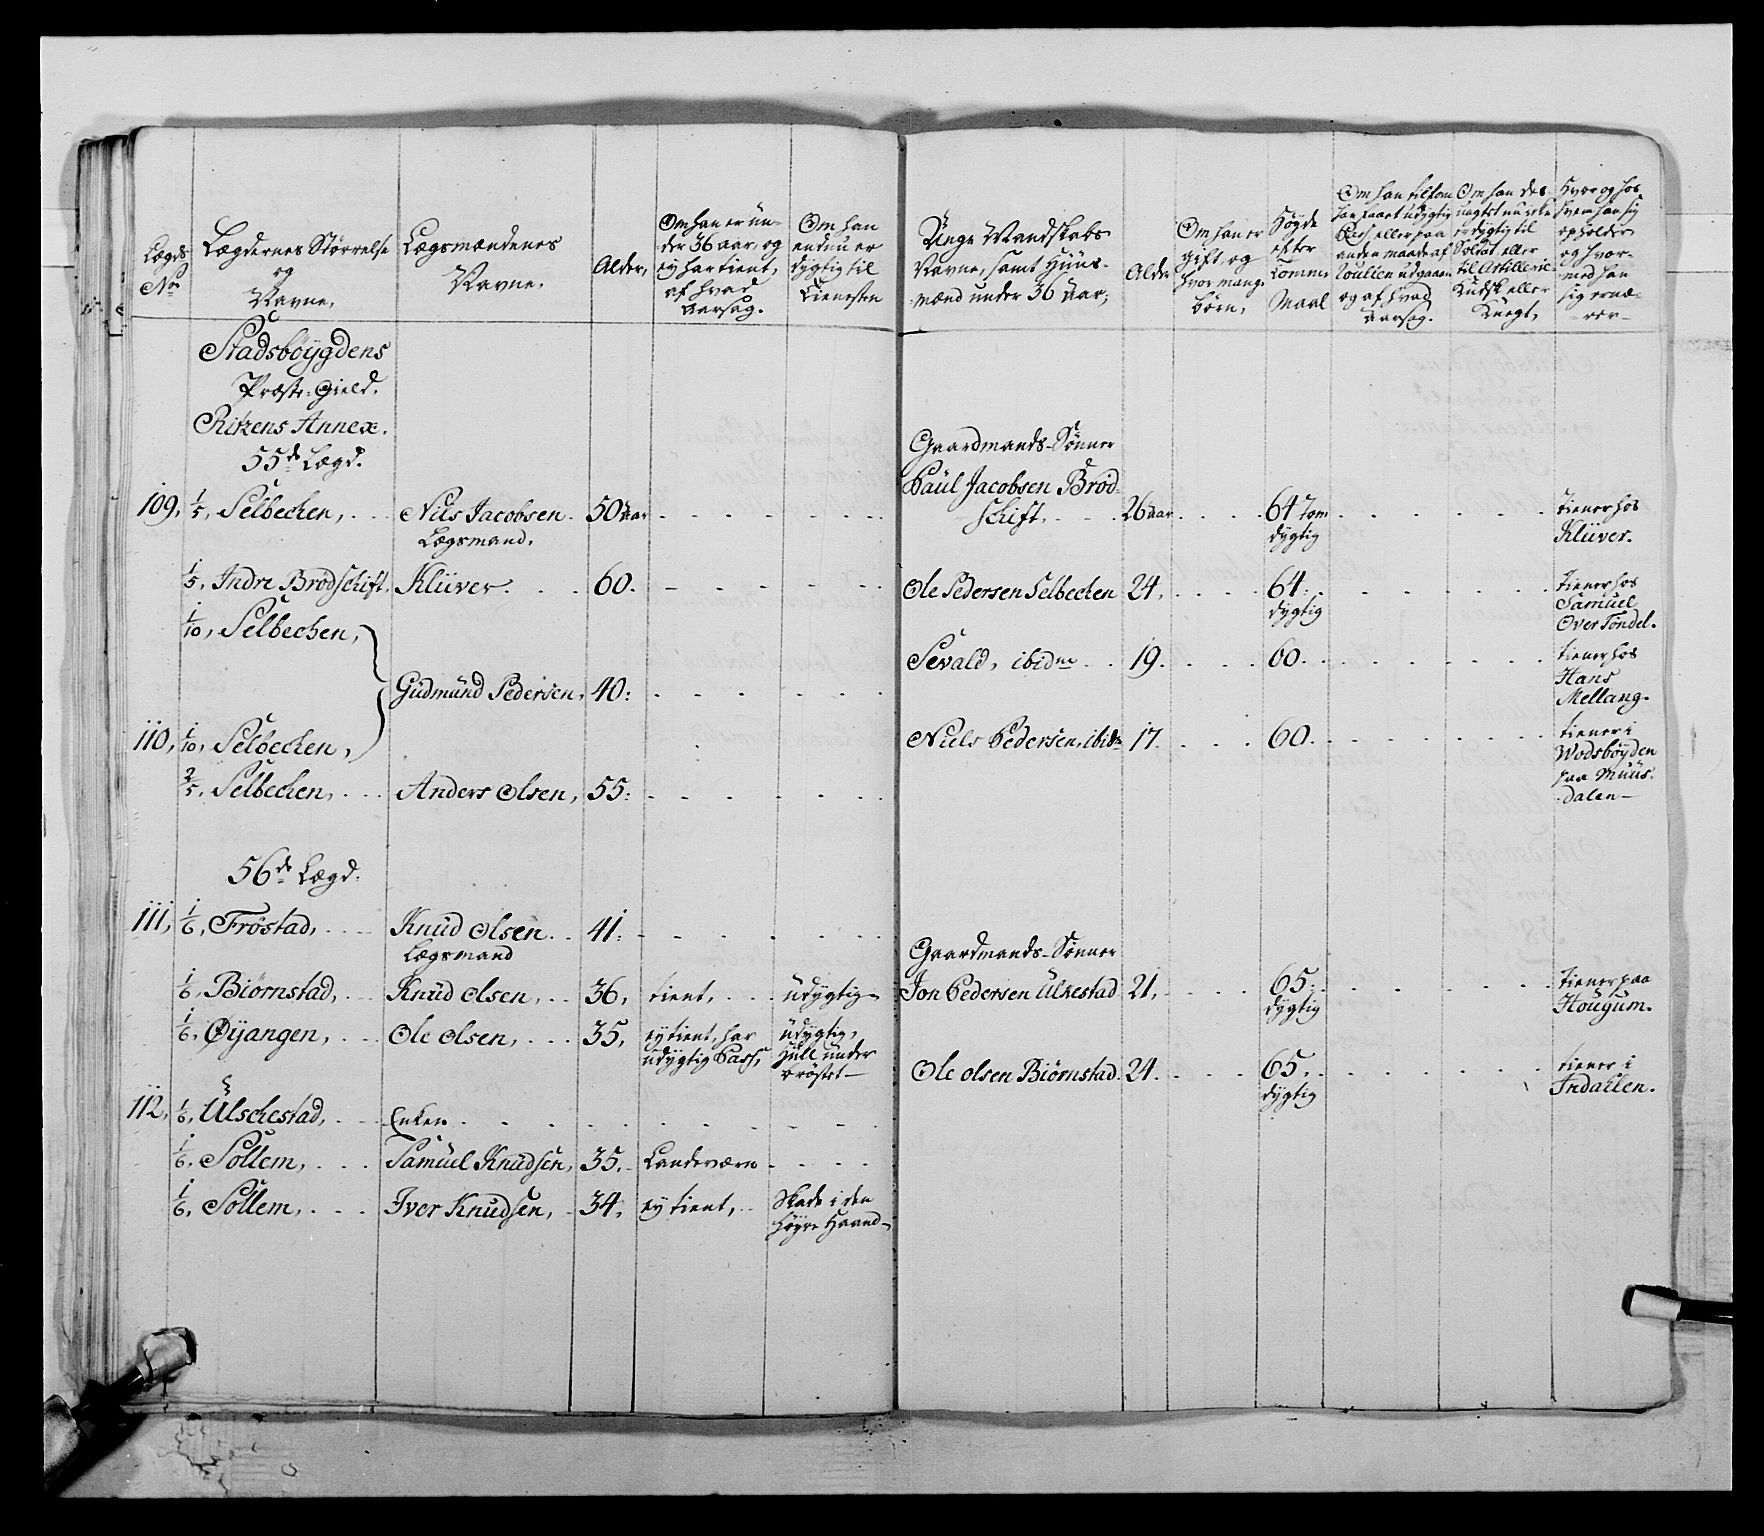 Lægds
No
Lægdernes Størrelse
og
Navne.
Lægsmændenes
Navne.
Alder,
Om han er ün-
der 36 aar og
ey har tient,
af hvad
Aarsag.
Om han
endnu er
dygtig til
Tienesten
Unge Mandskabs
Navne, samt Huus-
mænd under 36 Aar,
Alder
Om han er
gift og
hvor mange
börn,
Höyde
efter
Tomme
Maal
Om han tilforn
har faaet udygtig
Pass eller paa
anden maade af
Roullen udgaaen
og af hvad
Aarsag.
Om han des-
uagtet nu icke
er dygtig til
Soldat eller
til Artillerie
Kudsk eller
Knegt,
Hvor og hos
hvem han sig
opholder
og hvor-
med han
sig ernæ-
rer-
Stadsböygdens
Præste-Gield.
Ritzens Annex.
55de Lægd.
Gaardmands-Sönner
109, 1/5, Selbechen, Nils Jacobsen 50 Aar
Lægsmand.
Paül Jacobsen Bröd-
schift, 26 Aar 64 Tom
dygtig
tiener hos
Klüver.
1/5, Indre Brödschift, Klüver. 60.
Ole Pedersen Selbechen 24, 64.
dygtig
tiener hos
Samuel
Over Töndel.
1/10, Selbechen,
Güdmünd Pedersen, 40.
Sevald, ibidm 19. 60.
tiener hos
Hans
Mellang.
110, 1/10, Selbechen,
Niels Pedersen, ibidm 17. 60.
tiener i
Wodsböyden
paa Müüs-
dalen-
2/5, Selbechen, Anders Olsen, 55.
56de Lægd.
111, 1/6, Fröstad, Knüd Olsen 41.
Lægsmand
Gaardmands-Sönner
1/6, Biörnstad, Knüd Olsen, 36, tient, udygtig-
Jon Pedersen Ulkestad 21, 65.
dygtig
tiener paa
Hougum.
1/6, Øyangen, Ole Olsen, 35, ey tient, har
udygtig Pass,
udygtig,
Hull under
bröstet-
Ole Olsen Biörnstad. 24. 65.
dygtig
tiener i
Indahlen.
112, 1/6, Ulschestad, Enken
1/6, Sollem, Samüel Knüdsen, 35, Landeværn
1/6, Sollem, Iver Knudsen, 34, ey tient,
Skade i den
höyre Haand-